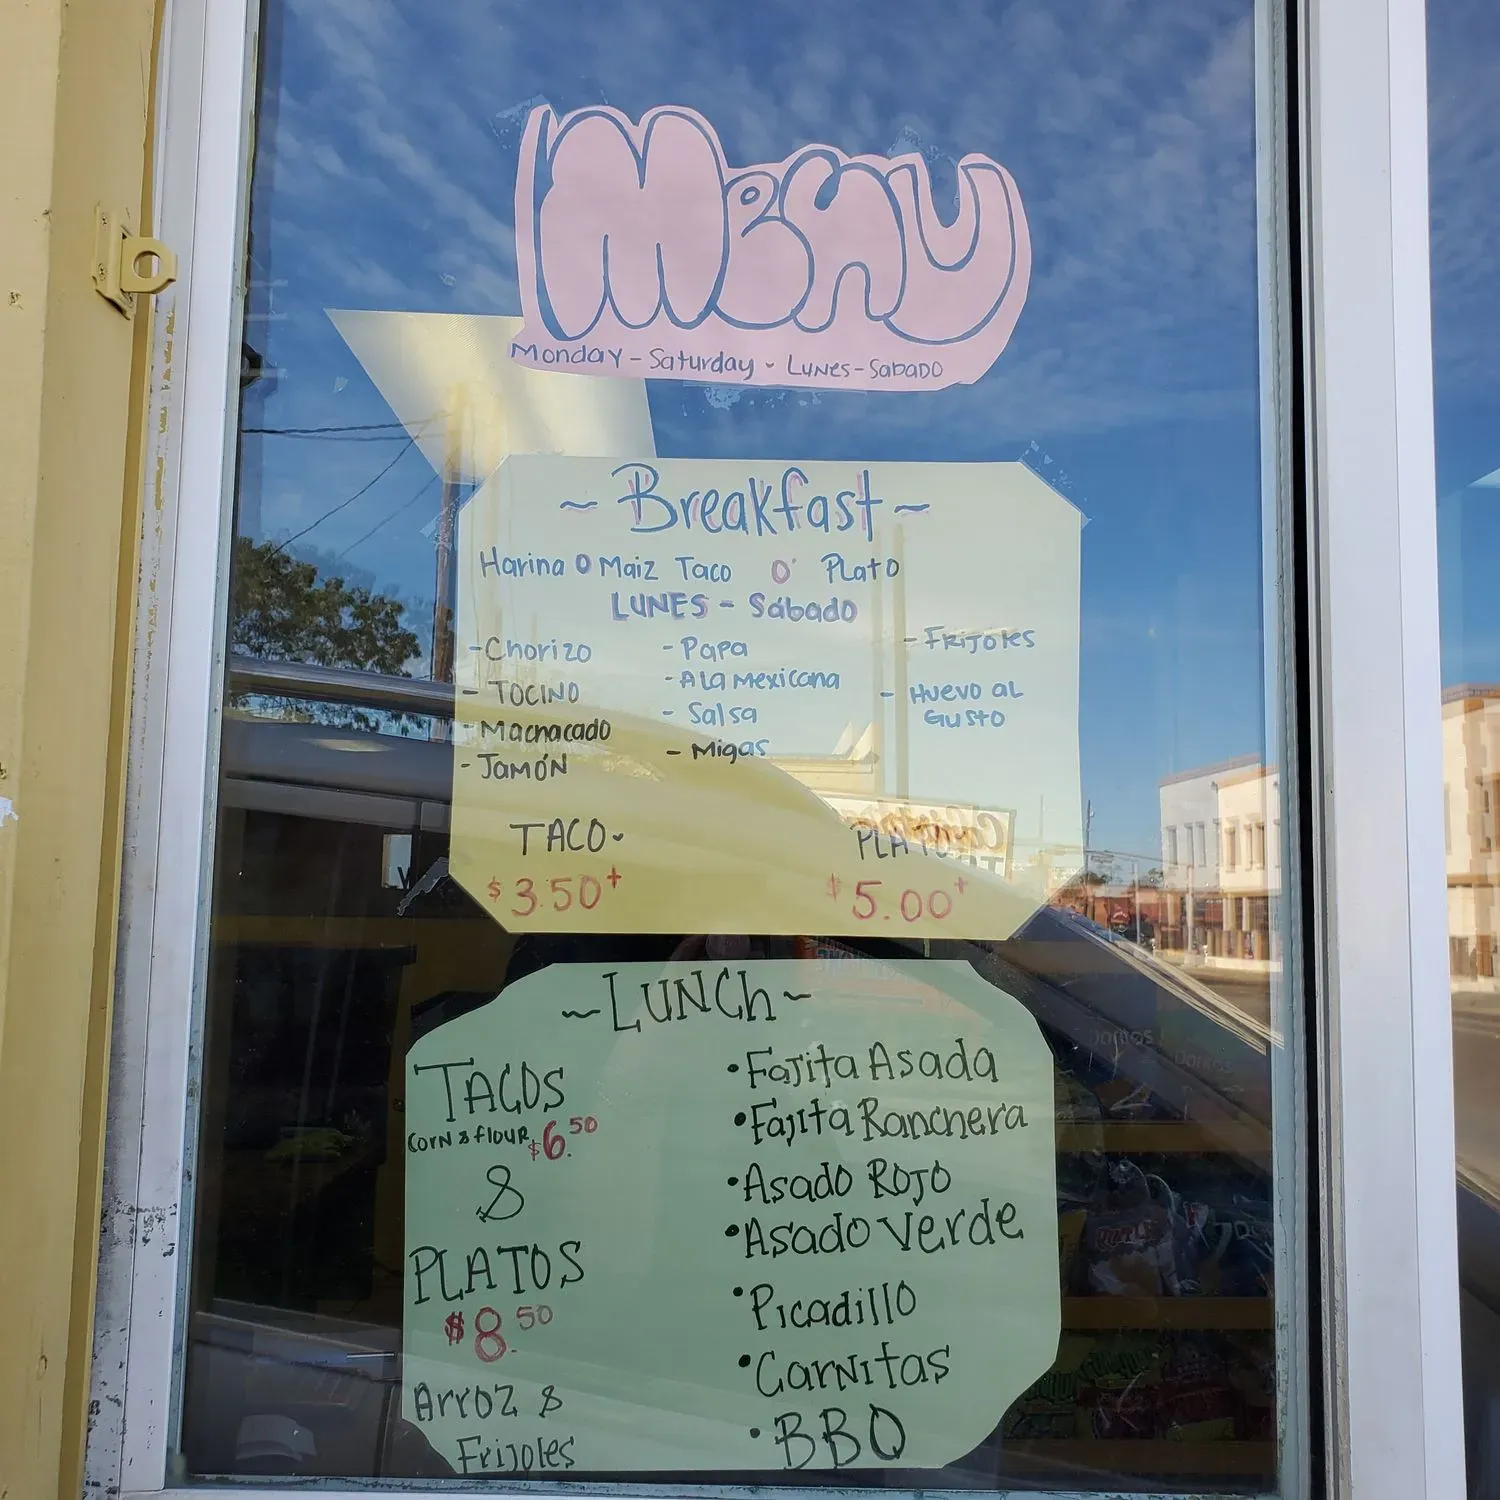 Menu
Monday - Saturday - Lunes - Sabado
~ Breakfast ~
Harina O Maiz Taco O' Plato
LUNES - Sábado
- Chorizo
- TOCINO
- Machacado
- Jamón
- Papa
- A La Mexicana
- Salsa
- Migas
- Frijoles
- Huevo al
Gusto
TACO
$3.50+
PLATO
$5.00+
~ LUNCh ~
TACOS
Corn & flour $6.50
&
PLATOS
$8.50
Arroz &
Frijoles
• Fajita Asada
• Fajita Ranchera
• Asado Rojo
• Asado Verde
• Picadillo
• Carnitas
• BBQ